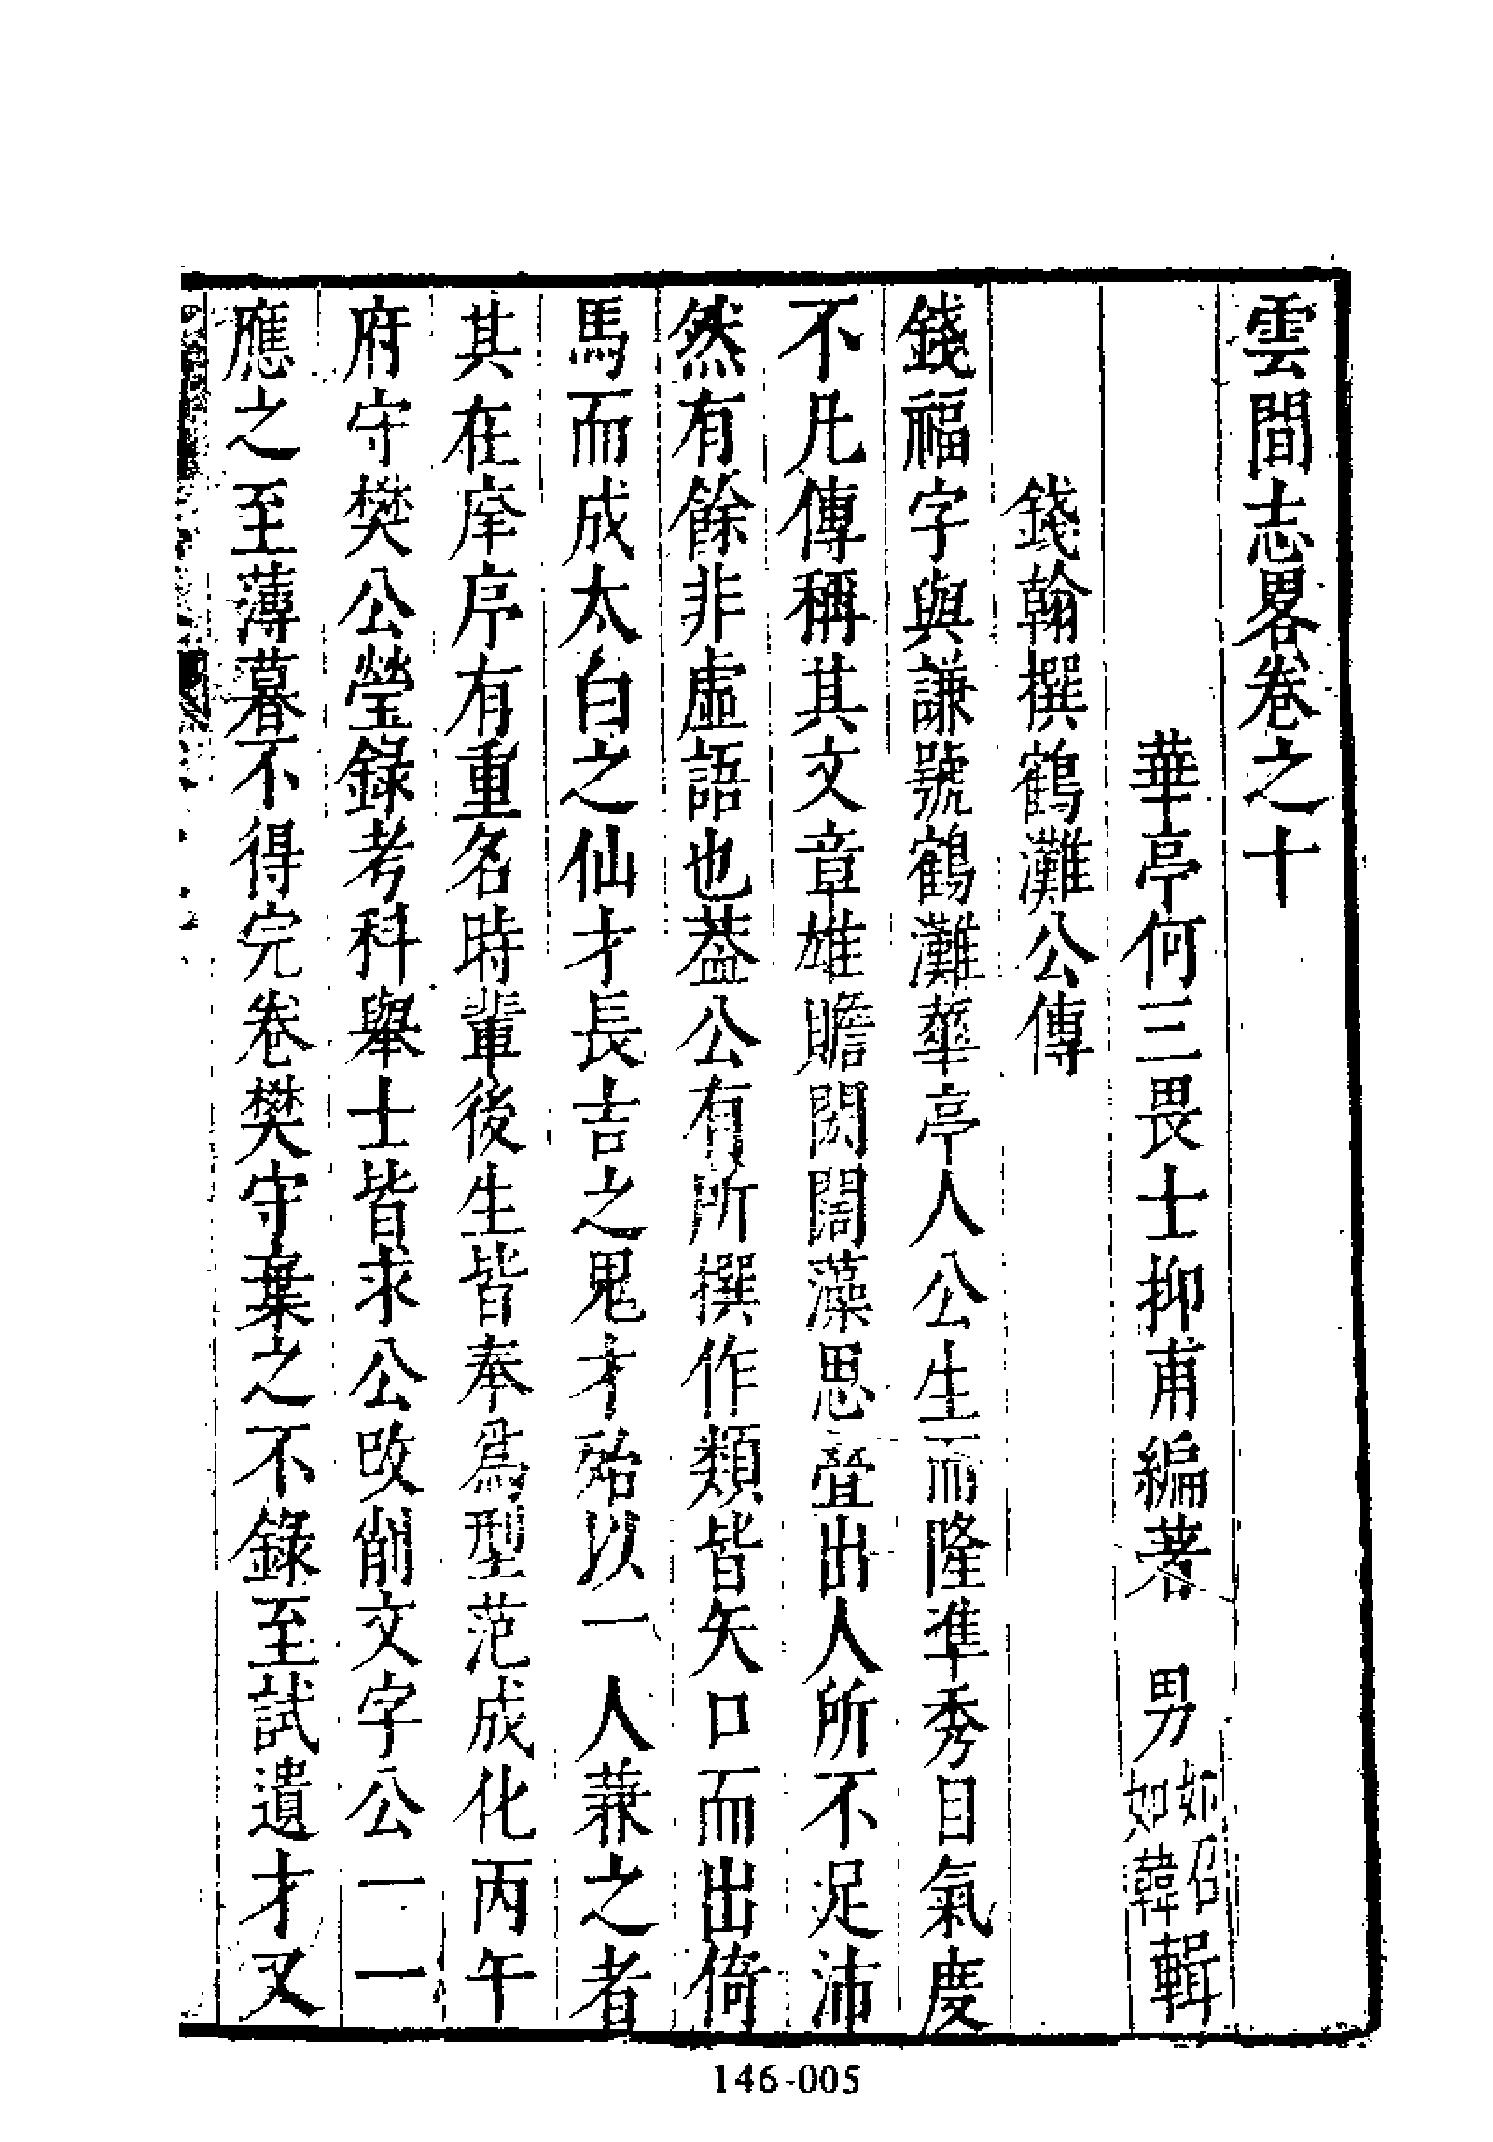 雲間志畧卷之十
華亭何三畏士抑甫編著　男如召如韓輯
錢翰撰鶴灘公傳
錢福字與謙號鶴灘華亭人公生而隆準秀目氣度
不凡傳稱其文章雄贍閎闊藻思疊出人所不足沛
然有餘非虛語也葢公有所撰作類皆矢口而出倚
馬而成太白之仙才長吉之鬼才殆以一人兼之者
其在庠序有重名時輩後生皆奉爲型范成化丙午
府守樊公瑩錄考科舉士皆求公改削文字公一一
應之至薄暮不得完卷樊守棄之不錄至試遺才又
146-005